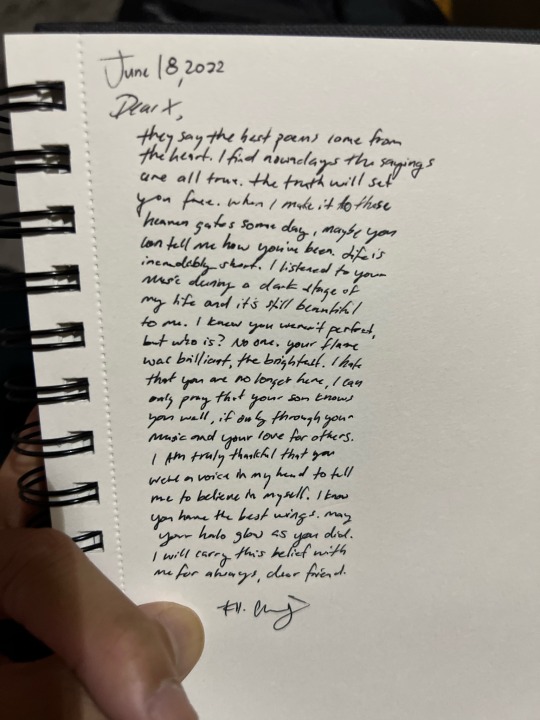 June 18, 2022
Dear X,
they say the best poems come from
the heart. I find nowadays the sayings
are all true. the truth will set
you free. when I make it to those
heaven gates some day, maybe you
can tell me how you've been. Life is
incredibly short. I listened to your
music during a dark stage of
my life and it's still beautiful
to me. I knew you weren't perfect,
but who is? No one. your flame
was brilliant, the brightest. I hate
that you are no longer here, I can
only pray that your son knows
you well, if only through your
music and your love for others.
I AM truly thankful that you
were a voice in my head to tell
me to believe in myself. I know
you have the best wings. may
your halo glow as you did.
I will carry this belief with
me for always, dear friend.